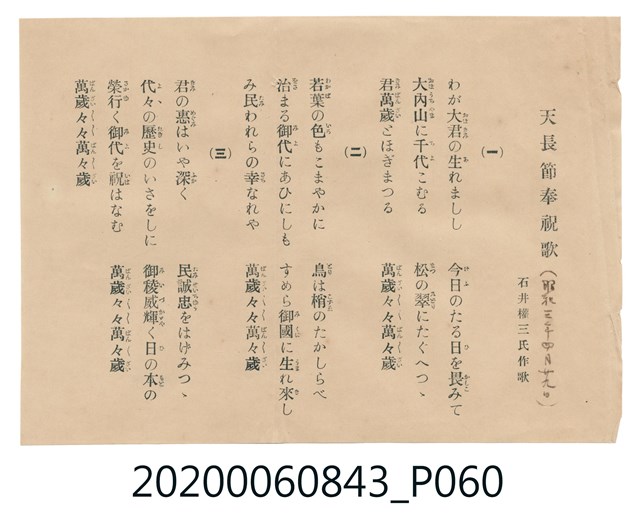 天長節奉祝歌(昭和三年四月廿九日)
石井權三氏作歌
(一)
わが大君の生れましし 今日のたる日を畏みて
大內山に千代こむる 松の翠にたぐへつゝ
君萬歲とほぎまつる 萬歲々々萬々歲
(二)
若葉の色もこまやかに 鳥は梢のたかしらべ
治まる御代にあひにしも すめら御國に生れ來し
み民われらの幸なれや 萬歲々々萬々歲
(三)
君の惠はいや深く 民誠忠をはげみつゝ
代々の歷史のいさをしに 御稜威輝く日の本の
榮行く御代を祝はなむ 萬歲々々萬々歲
萬歲々々萬々歲
20200060843_P060